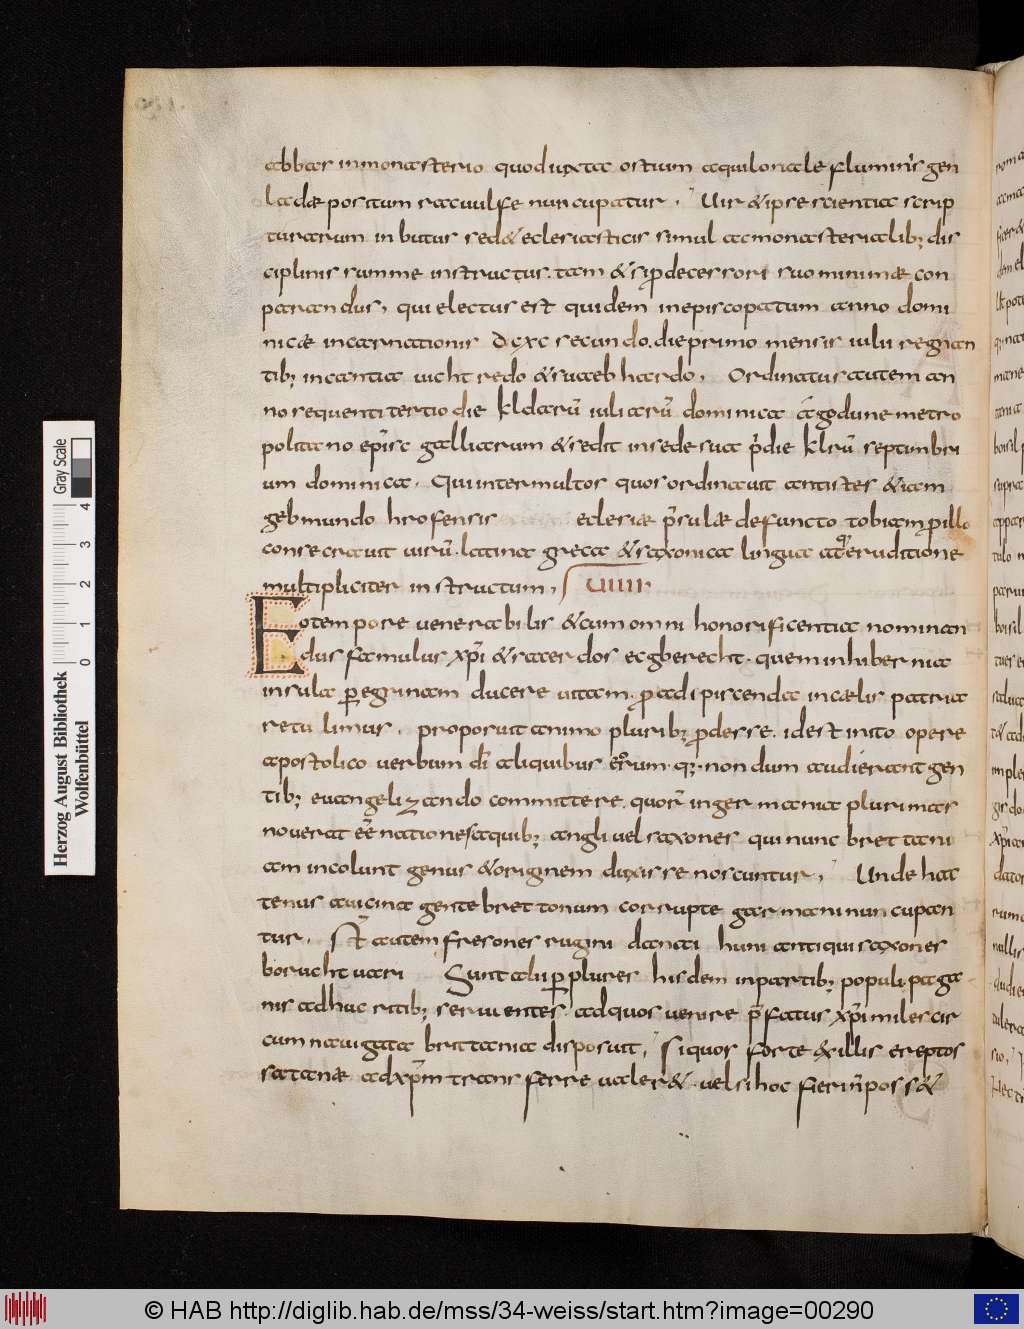 abbas in monasterio quod iuxta ostium aquilonale fluminis gen
ladae positum racuulfe nuncupatur. Uir & ipse scientia scrip
turarum inbutus sed & eclesiasticis simul ac monasterialib; dis
ciplinis summe instructus. tam & si p̄decessori suo minimae con
parandus, qui electus est quidem in episcopatum anno domi
nicae incarnationis dcxc secundo. die primo mensis iulii regnan
tib; in cantia uichtredo & suaebhardo. Ordinatus autem an
no sequenti tertio die kl darū iuliarū dominica a godune metro
politano ep̄isc galliarum & sedit in sede sua p̄die klrū septimbri
um dominica. Qui inter multos quos ordinauit antistes & iam
gebmundo hrofensis eclesiae p̄sulae defuncto tobiam p̄ illo
consecrauit uirū. latina greca & saxonica lingua atq; eruditione
multipliciter instructum, uiiii
Eo tempore uenerabilis & cum omni honorificentia nominan
dus famulus xp̄i & sacerdos ecgberecht. quem in hibernia
insula peregrinam ducere uitam. pro adipiscenda in caelis patria
retulimus. proposuit animo plurib; prodesse. id est inito opere
apostolico uerbum dī aliquibus eorum. q; nondum audierant gen
tib; euangelizando committere. quorū in germania plurimas
nouerat eē nationes a quib; angli uel saxones qui nunc brettani
am incolunt genus & originem duxisse noscuntur. Unde hac
tenus a uicina gente brettonum corrupte garmani nuncupan
tur. St autem fresones rugini danai huni antiqui saxones
boructuari Sunt alii p plures hisdem in partib; populi paga
nis adhuc ritib; seruientes. ad quos uenire p̄fatus xp̄i miles cir
cum nauigata britania disposuit. Si quos forte ex illis ereptos
satanae ad xp̄m transferre ualer&. uel si hoc fieri n̄ poss&
Herzog August Bibliothek
Wolfenbüttel
Gray Scale
0 1 2 3 4
© HAB http://diglib.hab.de/mss/34-weiss/start.htm?image=00290